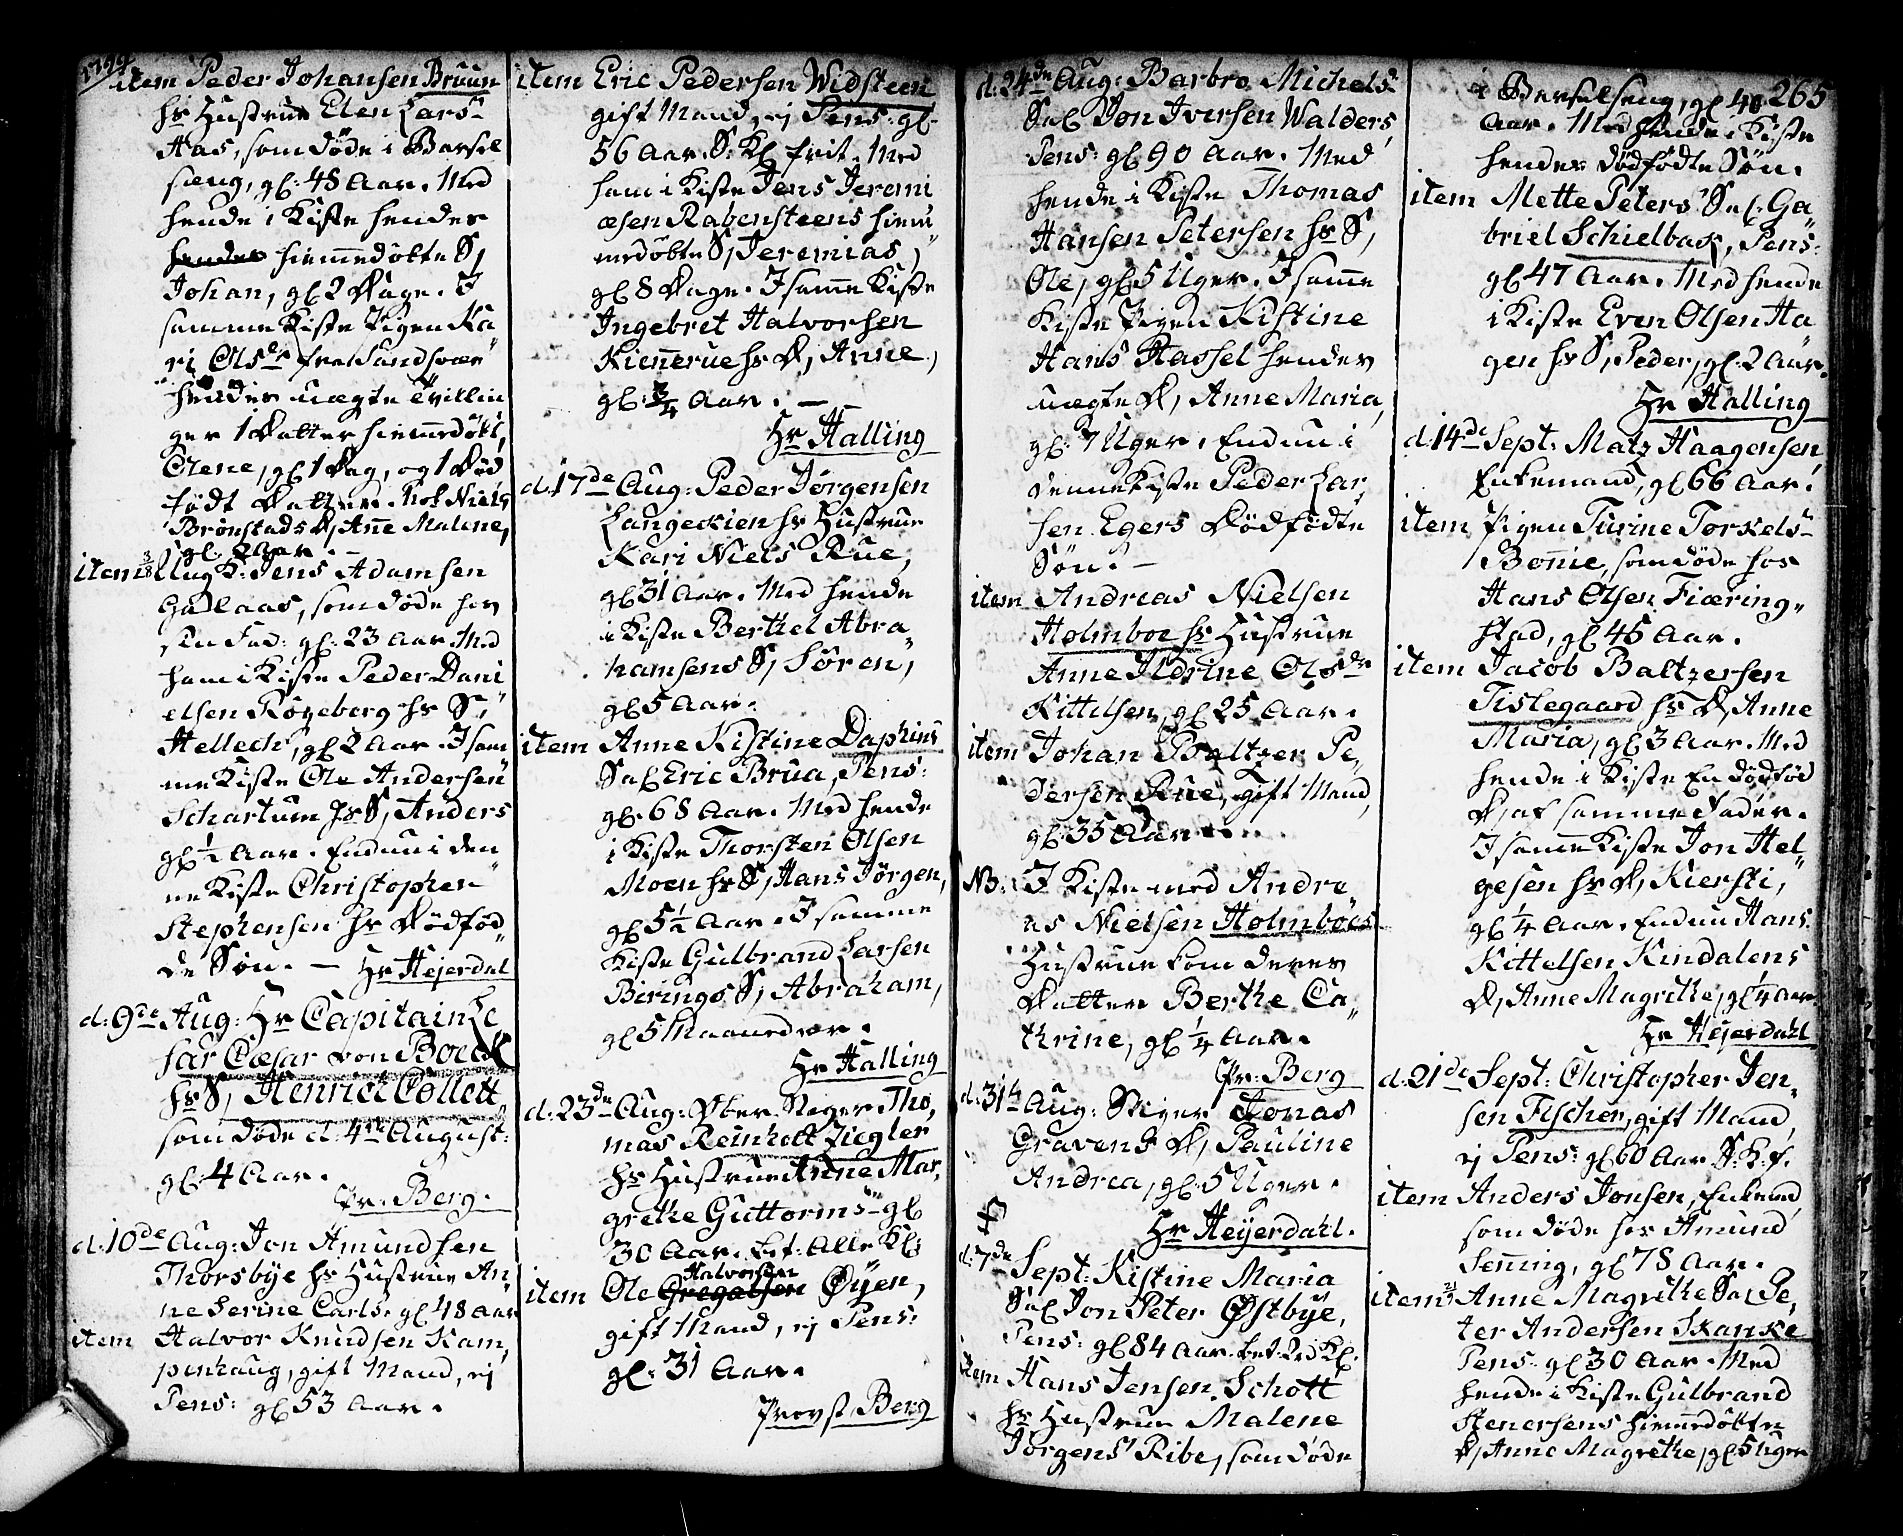 1799
item Peder Johansen Bruun
hs Hustrue Elen Lars-
Aas, som døde i Barsel
sæng, gl: 48 Aar. Med
hende i Kiste hendes
hendes hiemmedøbte S,
Johan, gl 2 Dage. I
samme Kiste Pigen Ka
ri Olsdr fra Sandsvær
hendes uægte Tvillin
ger 1 Datter hiemmedøbt,
Olene, gl 1 Dag, og 1 Død
født Datter. Niels
Brønstads D, Anne Malene,
gl. 2 Aar. -
item 3/8 Aug K: Jens Adamsen
Gallaas, som døde hos
sin Fad: gl: 23 Aar Med
ham i Kiste Peder Dani
elsen Røgeberg hs S,
Hellech, gl 2 Aar. I sam
me Kiste Ole Andersen
Schartum hs S, Anders
gl ½ Aar. Endnu i den
ne Kiste Christopher
Stephensen hs Dødfød
de Søn. - Hr Hejerdal
d: 9de Aug: Hr Capitain Ce
sar Cæsar von Boeck
hs S, Henrich Collett,
som døde d: 4de August:
gl 4 Aar.
Pr: Berg.
d: 10de Aug: Jon Amundsen
Thorsbye hs Hustrue An
ne Serine Carls. gl 48 Aar
item Halvor Knudsen Kam,
penhaug, gift Mand, ej
Pens: gl 53 Aar.
item Eric Pedersen Widsteen
gift Mand, ej Pens: gl.
56 Aar S: Kl frit. Med
ham i Kiste Jens Jeremi
æsen Rabensteens hiem
medøbte S, Jeremias,
gl 8 Dage. I samme Kiste
Ingebret Halvorsen
Kiennerue hs D, Anne,
gl: ¾ Aar. -
Hr Halling
d: 17de Aug: Peder Jørgensen
Langeckien hs Hustrue
Kari Niels Rue,
gl 31 Aar. Med hende
i Kiste Berthel Abra
hamsens S, Søren,
gl 5 Aar.
item Anne Kistine Daphins
Sal Eric Brua, Pens:
gl. 68 Aar. Med hende
i Kiste Thorsten Olsen
Moen hs S, Hans Jørgen,
gl 5½ Aar. I samme
Kiste Gulbrand Larsen
Birings S, Abraham,
gl 5 Maaneder.
Hr Halling
d: 23de Aug: Ober Steger Tho,
mas Reinholt Ziegler
hs Hustrue Anne Mar,
grethe Guttorms- gl
30 Aar. bet. Alle Kl:
item Ole Gregalsen Halvorsen Øÿen,
gift Mand, ej Pens:
gl: 31 Aar.
Provst Berg
d: 24de Aug: Barbro Michels-
Sal Jon Iversen Walders
Pens: gl 90 Aar. Med
hende i Kiste Thomas
Hansen Petersen hs S,
Ole, gl 5 Uger. I samme
Kiste Pigen Kistine
Hans Hassel hendes
uægte D, Anne Maria,
gl: 7 Uger. Endnu i
denne Kiste Peder Lar,
sen Egers Dødfødte
Søn. -
item Andreas Nielsen
Holmboe hs Hustrue
Anne Ildrine Olsdr
Kittelsen, gl 25 Aar.
item Johan Baltzer Pe,
dersen Rue, gift Mand,
gl: 35 Aar.
NB: I Kiste med Andre
as Nielsen Holmböes
Hustrue kom deres
Datter Berthe Ca,
thrine, gl ¼ Aar.
Pr: Berg
d: 31te Aug: Stiger Jonas
Gravens D, Pauline
Andrea, gl: 5 Uger.
Hr Heyerdahl.
d: 7de Sept: Kistine Maria
Sal Jon Peter Østbye,
Pens: gl 84 Aar. bet. 2rd Kl:
item Hans Jensen Schött
hs Hustrue Malene
Jørgens Ribe, som døde
265
i Barselseng, gl 40
Aar. Med hende i Kiste
hendes dødfødte Søn.
item Mette Peters Sal: Ga
briel Schielbak, Pens:
gl 47 Aar. Med hende
i Kiste Even Olsen Ha
gen hs S, Peder, gl: 2 Aar.
Hr Halling
d: 14de Sept: Matz Haagensen,
Enkemand, gl 66 Aar.
item Pigen Turine Torkels-
Bonnie, som døde hos
Hans Olsen Fiæring,
stad, gl 45 Aar.
item Jacob Baltzersen
Tislegaard hs D, Anne
Maria, gl 3 Aar. Med
hende i Kiste En dødfød
D, af samme Fader.
I samme Kiste Jon Hel
gesen hs D, Kiersti,
gl ¼ Aar. Endnu Hans
Kittelsen Kindalens
D, Anne Magrethe, gl ¼ Aar
Hr Hejerdahl.
d: 21de Sept: Christopher Jen,
sen Fischer, gift Mand,
ej Pens: gl 60 Aar S: K: f.
item Anders Jonsen, Enkemd
som døde hos Amund
Senning, gl 78 Aar.
item Anne Magrethe Sal Pe,
ter Andersen Skanke
Pens: gl 30 Aar. Med
hende i Kiste Gulbrand
Stenersens hiemmedøbte
D, Anne Magrethe, gl 5 Uger